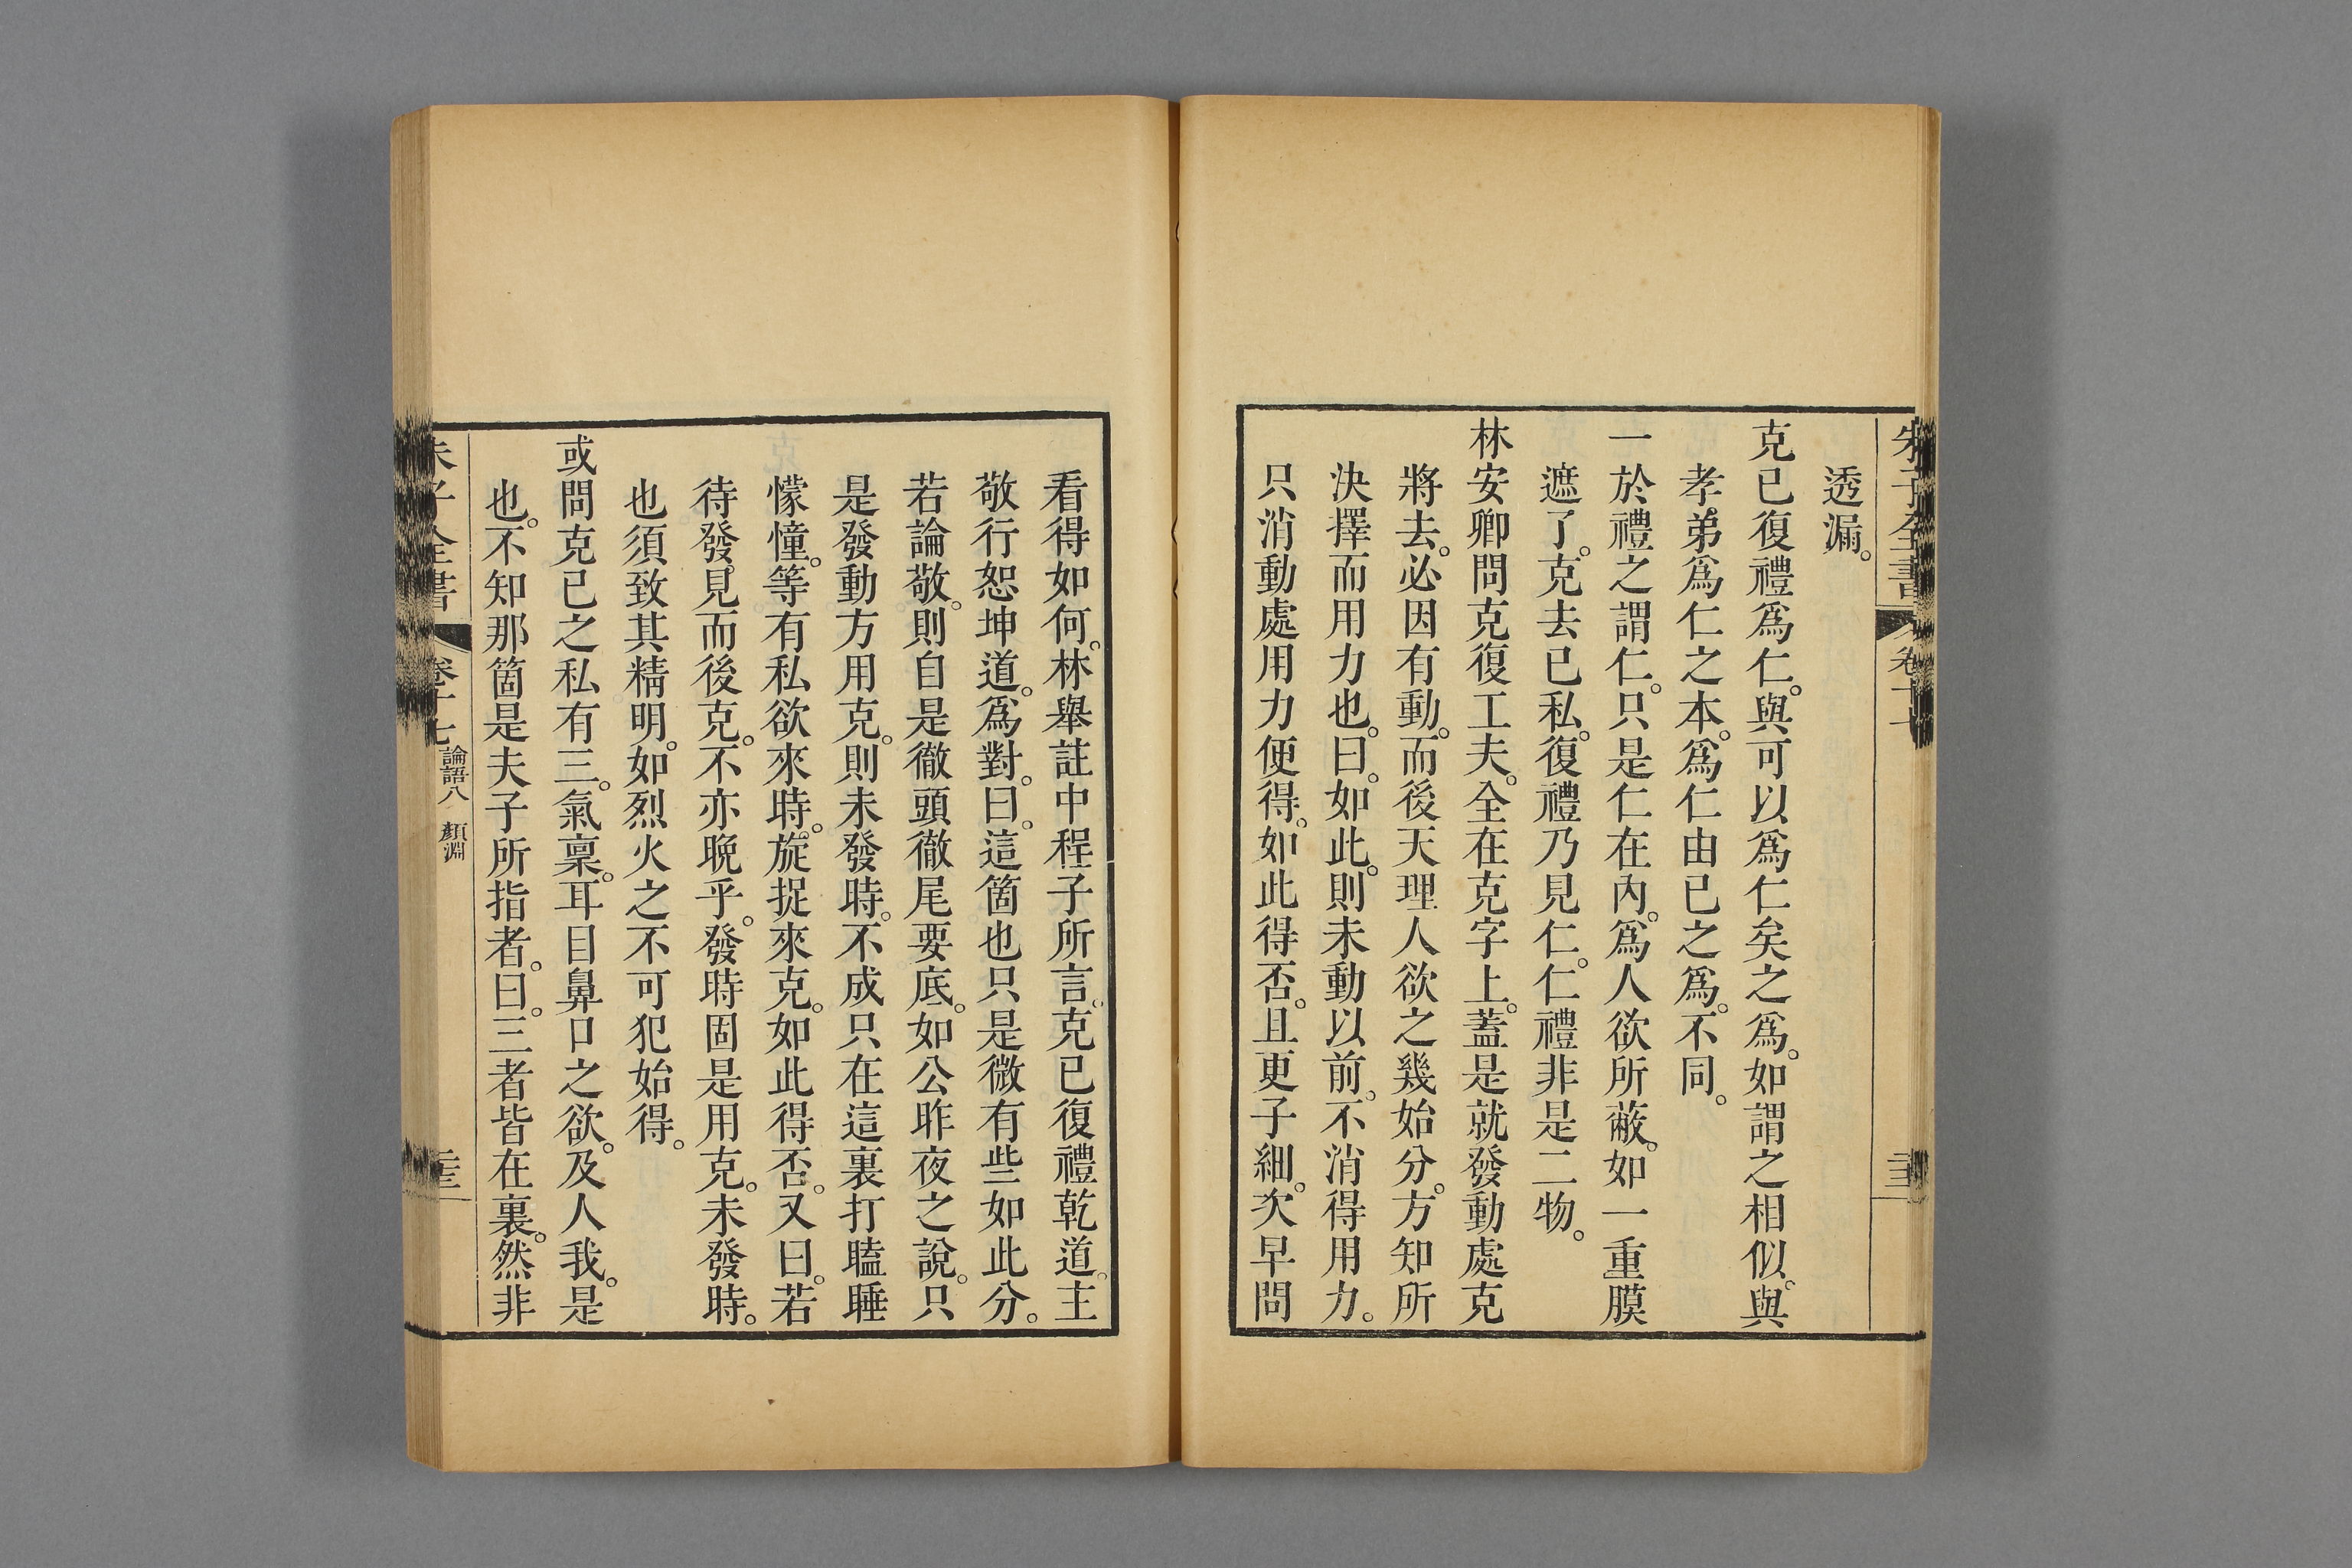 朱子全書 卷十七
透漏。
克己復禮爲仁。與可以爲仁矣之爲。如謂之相似。與
孝弟爲仁之本。爲仁由己之爲。不同。
一於禮之謂仁。只是仁在內。爲人欲所蔽。如一重膜
遮了。克去己私。復禮乃見仁。仁禮非是二物。
林安卿問克復工夫。全在克字上。蓋是就發動處克
將去。必因有動。而後天理人欲之幾始分。方知所
決擇而用力也。曰。如此。則未動以前。不消得用力。
只消動處用力便得。如此得否。且更子細。次早問
看得如何。林舉註中程子所言。克己復禮乾道。主
敬行恕坤道。爲對。曰。這箇也只是微有些如此分。
若論敬。則自是徹頭徹尾要底。如公昨夜之說。只
是發動方用克。則未發時。不成只在這裏打瞌睡
懞憧。等有私欲來時。旋捉來克。如此得否。又曰。若
待發見而後克。不亦晚乎。發時固是用克。未發時。
也須致其精明。如烈火之不可犯始得。
或問克己之私有三。氣稟。耳目鼻口之欲。及人我。是
也。不知那箇是夫子所指者。曰。三者皆在裏。然非
朱子全書 卷十七 論語八 顏淵